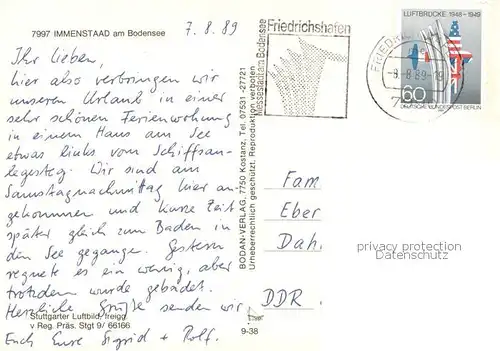 7997 IMMENSTAAD am Bodensee
7.8.89
Ihr Lieben,
hier also verbringen wir
unseren Urlaub in einer
sehr schönen Ferienwohnung
in einem Haus am See
etwas links vom Schiffsan-
legesteg. Wir sind am
Samstagnachmittag hier an-
gekommen und kurze Zeit
später gleich zum Baden in
den See gegange. Gestern
regnete es ein wenig, aber
trotzdem wurde gebadet.
Herzliche Grüße senden wir
Stuttgarter Luftbild, freigg.
v Reg. Präs. Stgt 9/ 66166
Euch Eure Sigrid + Rolf.
BODAN-VERLAG, 7750 Kostanz, Tel. 07531-27721
Urheberrechtlich geschützt. Reproduktion verboten
9-38
Messestadt am Bodensee
Friedrichshafen
FRIED
-8.-8.89-19
LUFTBRÜCKE 1948-1949
60
DEUTSCHE BUNDESPOST BERLIN
Fam
Eber
Dah
DDR
privacy protection
AnsichtskartenVersand